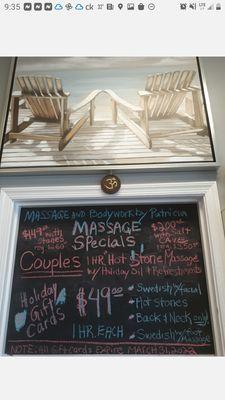 9:35
LTE
MASSAGE AND Bodywork by Patricia
MASSAGE
Specials
$149.00
with
stones
Couples
1 HR. Hot Stone Massage
w/ Holiday Oil & Refreshments
$200.00
with Salt
Holiday
Gift
Cards
$49.00
1 HR. EACH
Swedish w/facial
Hot Stones
Back & Neck only
Swedish w/foot
MASSAGE
NOTE: All Gift Cards Expire MARCH 31, 2022